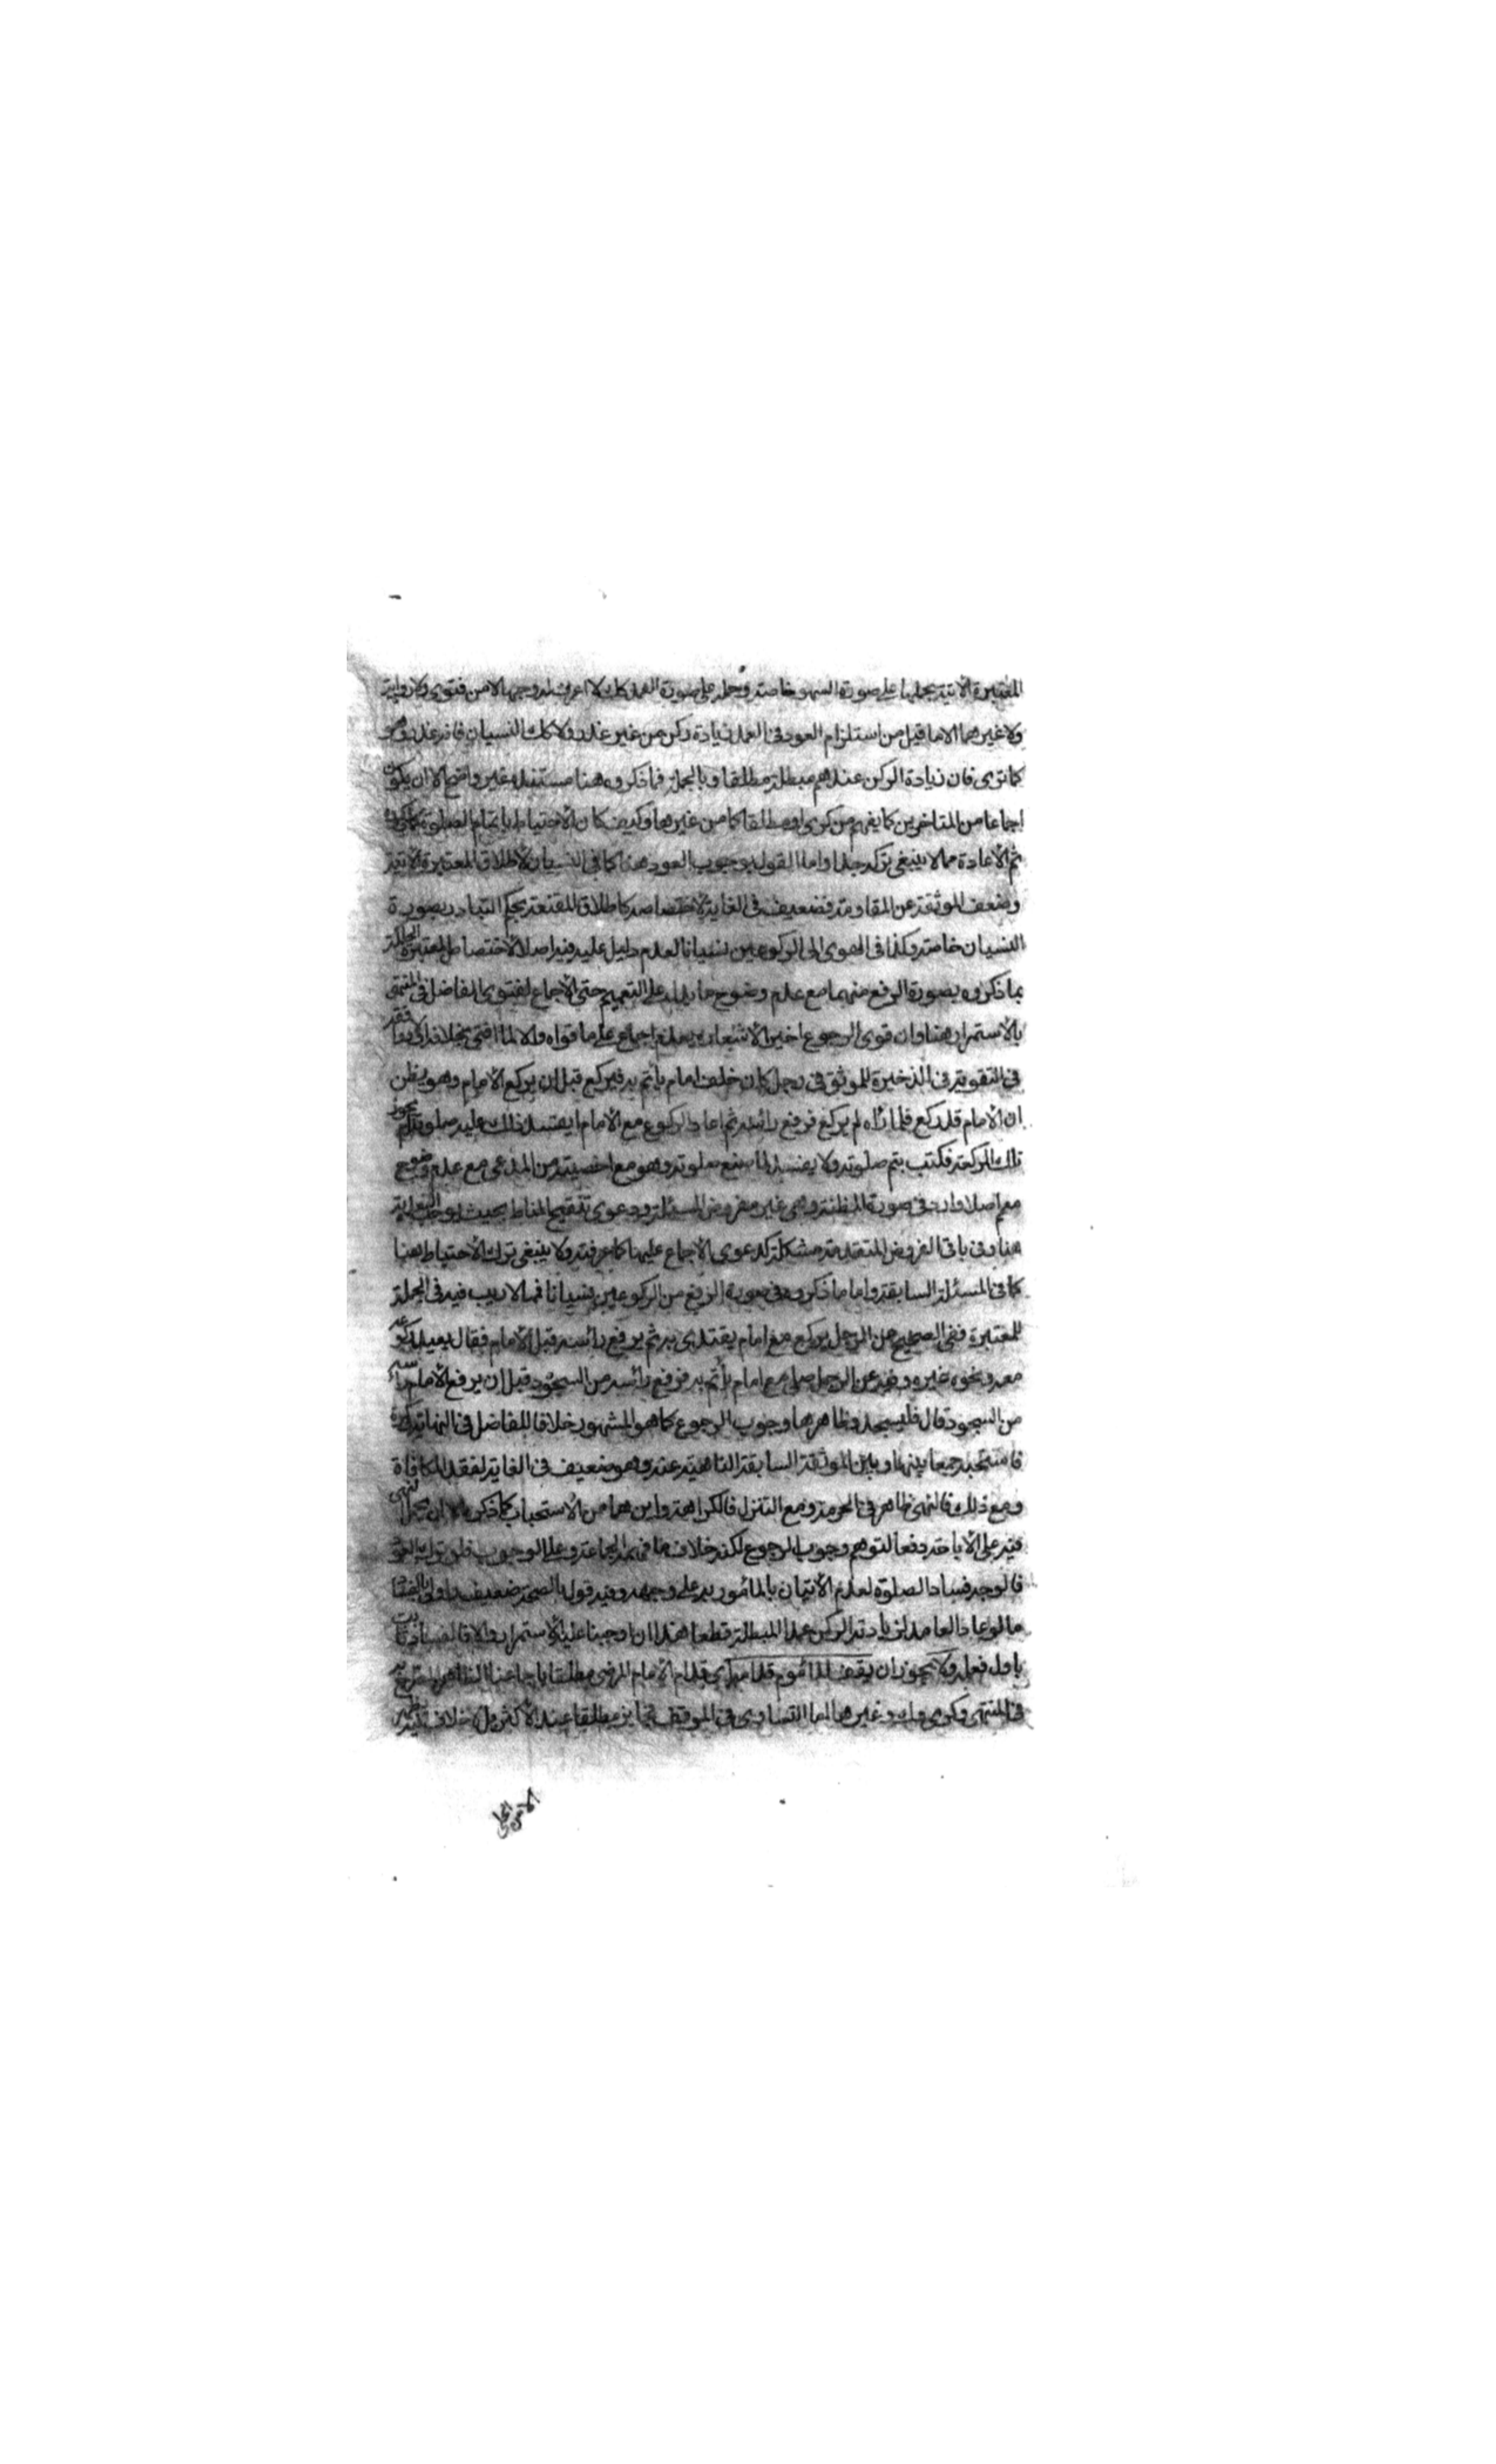 المعتبرة الاتية بحملها على صورة السهو خاصة وحمله على صورة العمد كل لا اعرف له وجها لا من فتوى ولا رواية
ولا غيرهما الا ما قيل من استلزام العود فى العمد زيادة ركن من غير عذر ولا كك النسيان فانه عذر وهو
كما ترى فان زيادة الركن عندهم مبطلة مطلقا وبالجملة فما ذكروه هنا مستنده غير واضح الا ان يكون
اجماعا من المتاخرين كما يفهم من كرى او مطلقا كما من غيرها وكيف كان الاحتياط باتمام الصلوة
ثم الاعادة مما لا ينبغى تركه جدا واما القول بوجوب العود هنا كما فى النسيان لاطلاق المعتبرة الاتية
وضعف الموثقة عن المقاومة فضعيف فى الغاية لاختصاصه كاطلاق المقنعة بحكم التبادر بصورة
النسيان خاصة وكذا فى الهوى الى الركوعين نسيانا لعدم دليل عليه فيه اصلا لاختصاص المعتبرة الحاكمة
بما ذكروه بصورة الرفع منهما مع عدم وضوح ما يدل على التعميم حتى الاجماع لفتوى الفاضل فى المنتهى
بالاستمرار هنا وان قوى الرجوع اخيرا لاشعاره بعدم اجماع على ما قواه والا لما افتى بخلافه
فى التقوية فى الذخيرة للموثق فى رجل كان خلف امام يأتم به فيركع قبل ان يركع الامام وهو يظن
ان الامام قد ركع فلما رآه لم يركع فرفع رأسه ثم اعاد الركوع مع الامام ايفسد ذلك عليه صلوته ام يجوز
تلك الركعة فكتب يتم صلوته ولا يفسد ما صنع صلوته وهو مع اخصيته من المدعى مع عدم وضوح
معه اصلا وارد فى صورة المظنة وهى غير مفروض المسئلة ودعوى تنقيح المناط بحيث
هنا وفى باقى الفروض المتقدمة مشكلة كدعوى الاجماع عليها كما عرفته ولا ينبغى ترك الاحتياط هنا
كما فى المسئلة السابقة واما ما ذكروه فى صورة الرفع من الركوعين نسيانا فما لا ريب فيه فى الجملة
للمعتبرة ففى الصحيح عن الرجل يركع مع امام يقتدى به ثم يرفع رأسه قبل الامام فقال يعيد ركوعه
معه ونحوه غيره وفيه عن الرجل صلى مع امام يأتم به فرفع رأسه من السجود قبل ان يرفع الامام رأسه
من السجود قال فليسجد وظاهرها وجوب الرجوع كما هو المشهور خلافا للفاضل فى النهاية
فاستحبه جمعا بينها وبين الموثقة السابقة الناهية عنه وهو ضعيف فى الغاية لفقد المكافاة
ومع ذلك فالنهى ظاهر فى الحرمة ومع التنزل فالكراهة واين هما من الاستحباب كما ذكره الا ان يحمل النهى
فيه على الاباحة دفعا لتوهم وجوب الرجوع لكنه خلاف وعلى الوجوب فلو ترك
فالوجه فساد الصلوة لعدم الاتيان بالمامور به على وجهه وفيه قول بالصحة ضعيف واولى بالفساد
ما لو عاد العامد لزيادته الركن عمدا المبطلة قطعا هذا ان اوجبنا عليه الاستمرار والا فالفساد ثابت
باول فعله ولا يجوز ان يقف المأموم قدام الامام المرضى مطلقا باجماعنا الظاهر المصرح به
فى المنتهى وكرى وك وغيرها اما التساوى فى الموقف فجايز مطلقا عند الاكثر بل لا خلاف فيه